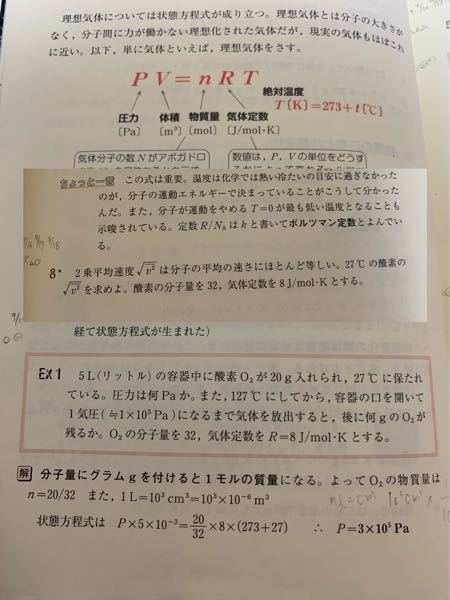 理想気体については状態方程式が成り立つ。理想気体とは分子の大きさが
なく，分子間に力が働かない理想化された気体だが，現実の気体もほぼこれ
に近い。以下，単に気体といえば，理想気体をさす。
PV=nRT
絶対温度
T〔K〕=273+t〔℃〕
圧力 体積 物質量 気体定数
〔Pa〕 〔m³〕 〔mol〕 〔J/mol·K〕
気体分子の数Nがアボガドロ
数値は，P，Vの単位をどうする
ちょっと一言 この式は重要。温度は化学では熱い冷たいの目安に過ぎなかった
のが，分子の運動エネルギーで決まっていることがこうして分かった
んだ。また，分子が運動をやめるT=0が最も低い温度となることも
示唆されている。定数R/N_Aはkと書いてボルツマン定数とよんでい
る。
8* 2乗平均速度√v²は分子の平均の速さにほとんど等しい。27℃の酸素の
√v²を求めよ。酸素の分子量を32，気体定数を8J/mol·Kとする。
経て状態方程式が生まれた)
EX 1 5L(リットル)の容器中に酸素O₂が20g入れられ，27℃に保たれ
ている。圧力は何Paか。また，127℃にしてから，容器の口を開いて
1気圧(≒1×10⁵Pa)になるまで気体を放出すると，後に何gのO₂が
残るか。O₂の分子量を32，気体定数をR=8J/mol·Kとする。
解 分子量にグラムgを付けると1モルの質量になる。よってO₂の物質量は
n=20/32 また，1L=10³cm³=10³×10⁻⁶m³
状態方程式は P×5×10⁻³=20/32×8×(273+27) ∴ P=3×10⁵Pa